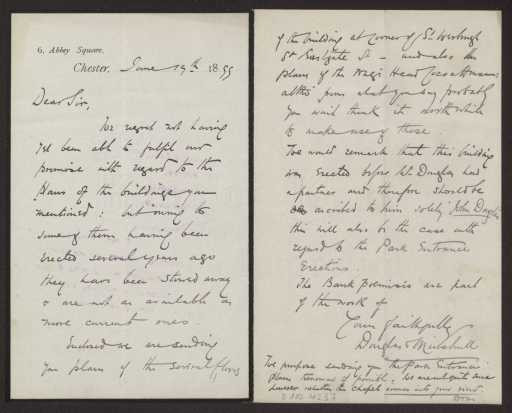 6, Abbey Square,
Chester, June 19th 1899
Dear Sir,
We regret not having
yet been able to fulfil our
promise with regard to the
plans of the buildings you
mentioned: but owing to
some of them having been
erected several years ago
they have been stowed away
& are not as available as
more current ones.
Enclosed we are sending
you plans of the several floors
of the building at corner of St Werburgh
St Eastgate St - and also the
plans of the Nags Head Cocoa House
altho from what you say probably
you wont think it worth while
to make use of these.
We would remark that this building
was erected before Mr Douglas had
a partner and therefore should be
ascribed to him solely John Douglas
this will also be the case with
regard to the Park Entrance
Erections.
The Bank premises are part
of the work of
Yours faithfully
Douglas & Minshull
We propose sending you the Park Entrance
plans tomorrow if possible. We are not quite sure
however whether the chapel comes into your mind.